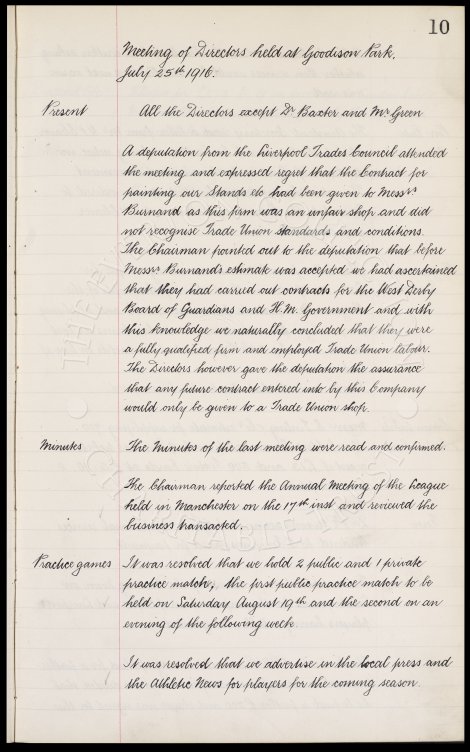 10
Meeting of Directors held at Goodison Park,
July 25th 1916.
Present All the Directors except Dr Baxter and Mr Green
A deputation from the Liverpool Trades Council attended
the meeting and expressed regret that the Contract for
painting our Stands etc had been given to Messrs
Burnand as this firm was an unfair shop and did
not recognise Trade Union standards and conditions.
The Chairman pointed out to the deputation that before
Messrs Burnands estimate was accepted we had ascertained
that they had carried out contracts for the West Derby
Board of Guardians and H.M. Government and with
this knowledge we naturally concluded that they were
a fully qualified firm and employed Trade Union labour.
The Directors however gave the deputation the assurance
that any future contract entered into by this Company
would only be given to a Trade Union shop.
Minutes The Minutes of the last meeting were read and confirmed.
The Chairman reported the Annual Meeting of the League
held in Manchester on the 17th inst and reviewed the
business transacted.
Practice games It was resolved that we hold 2 public and 1 private
practice match, the first public practice match to be
held on Saturday August 19th and the second on an
evening of the following week
It was resolved that we advertise in the local press and
the Athletic News for players for the coming season.